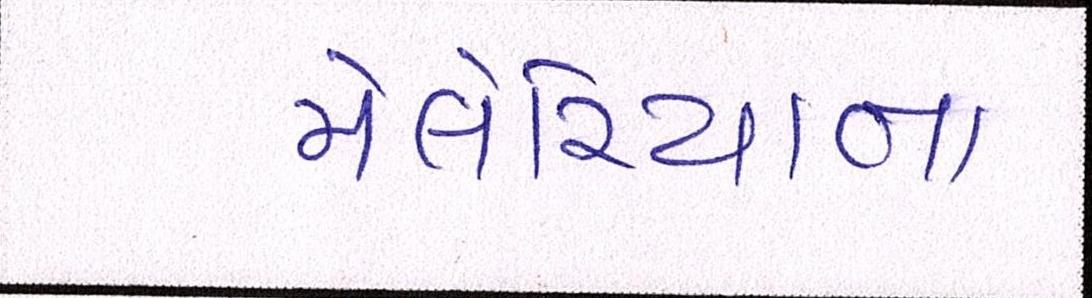 મેલેરિયાના